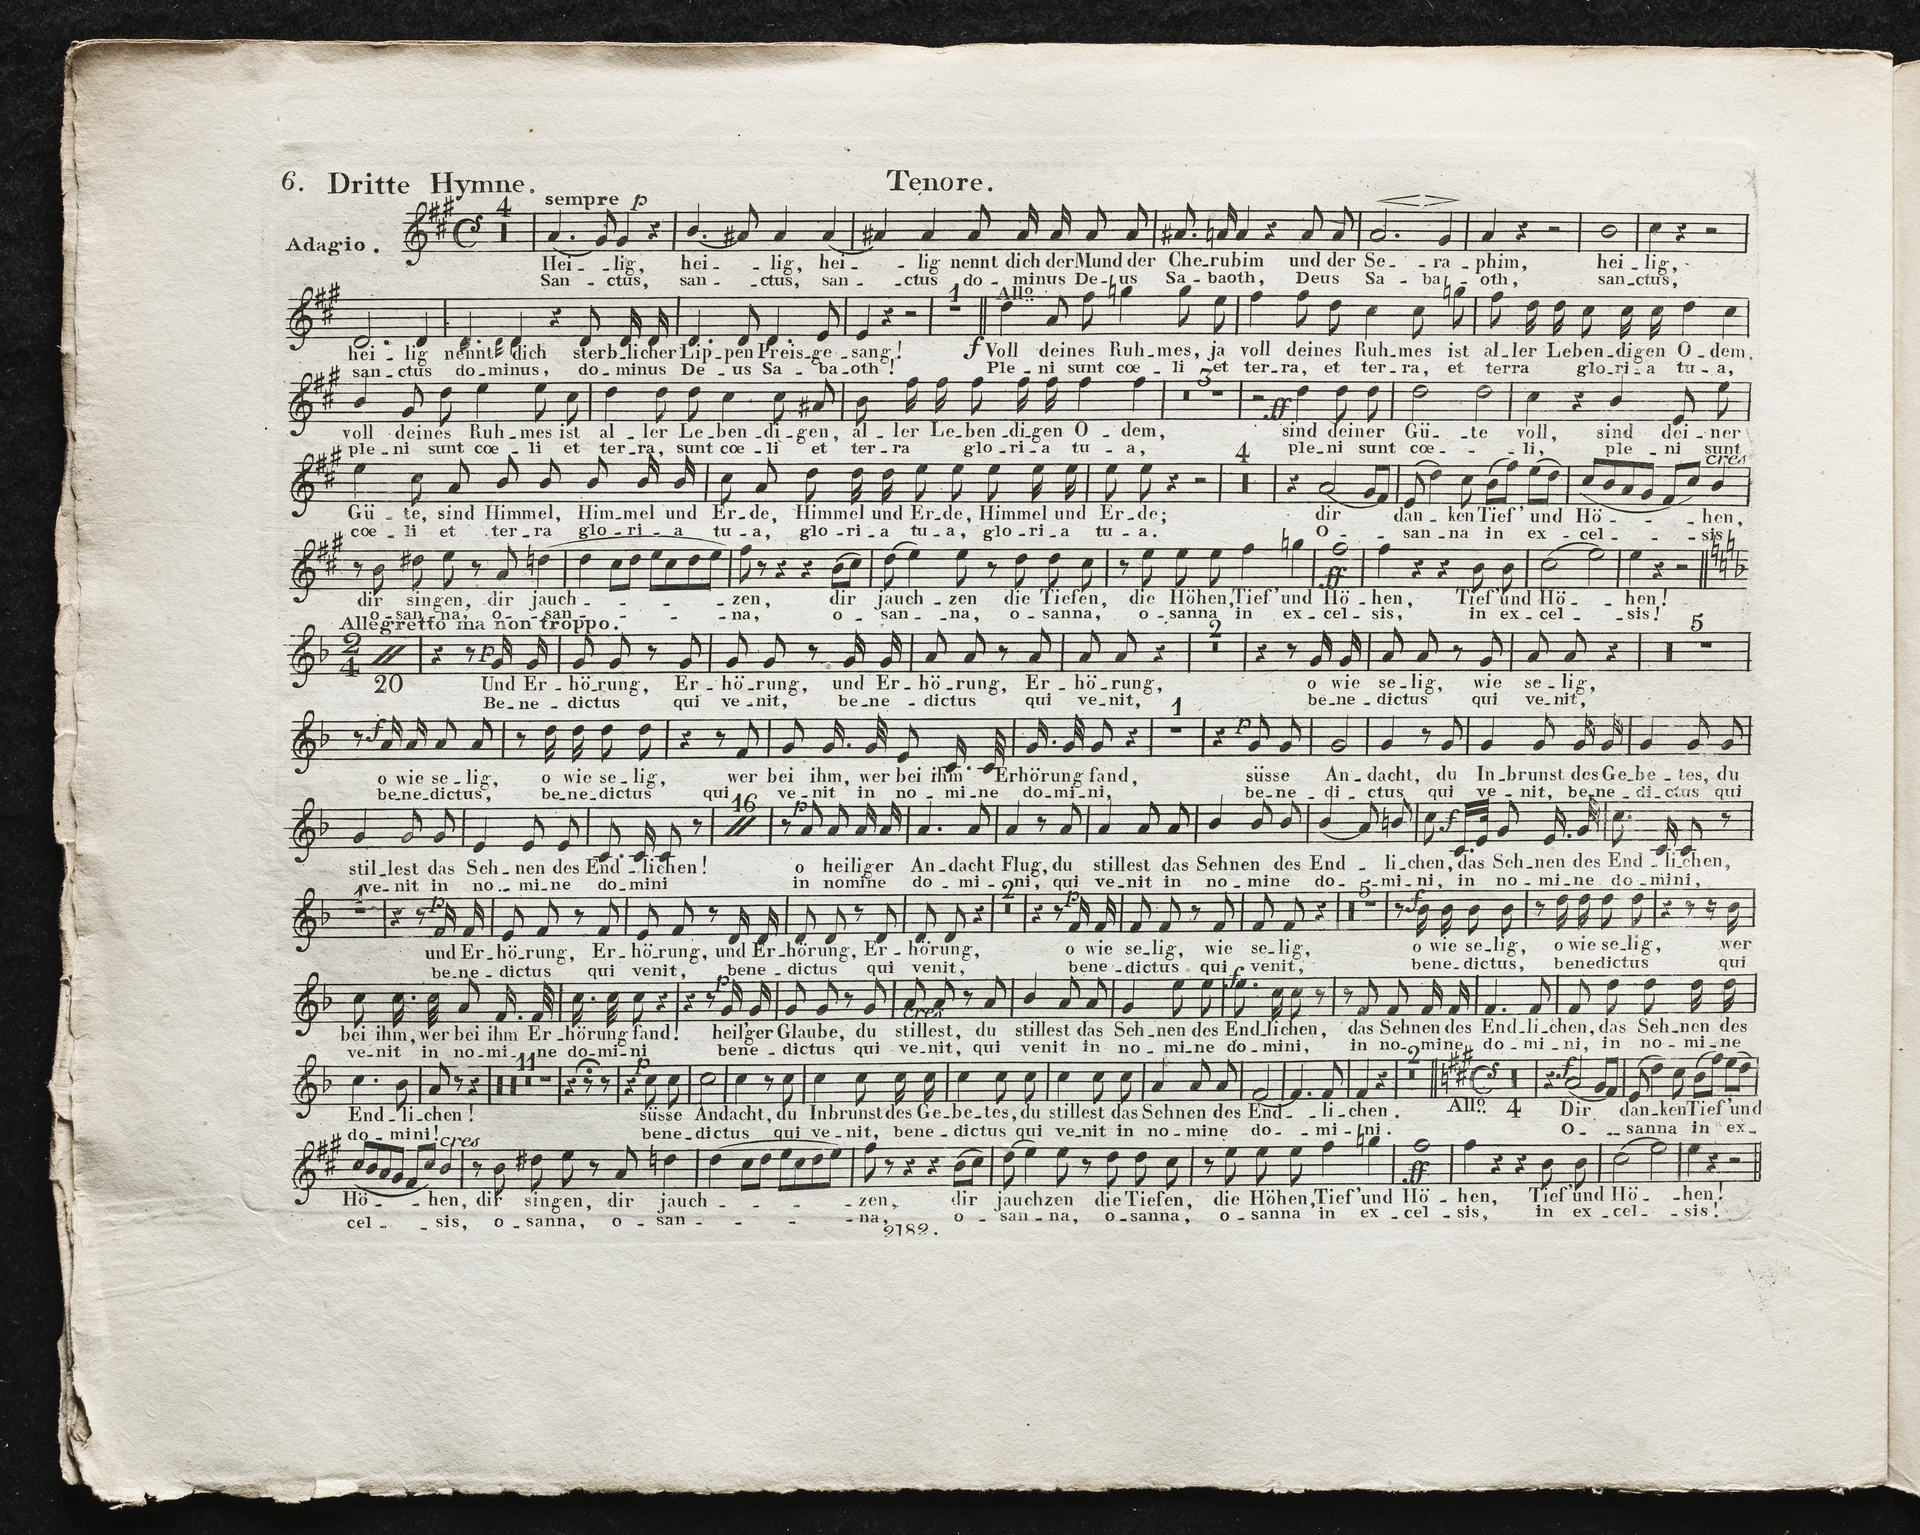 6. Dritte Hymne. Tenore.
sempre p
4
Adagio.
Hei - - lig, hei - - lig, hei - - lig nennt dich der Mund der Che-rubim und der Se - - ra - phim, hei - lig,
San - ctus, san - - ctus, san - - ctus do - minus De - us Sa - baoth, Deus Sa - ba - oth, san - ctus,
1 Allo.
hei - lig nennt dich sterb-licher Lip-pen Preis-ge-sang! f Voll deines Ruh-mes, ja voll deines Ruh-mes ist al-ler Leben-digen O-dem,
san - ctus do-minus, do-minus De-us Sa-ba-oth! Ple-ni sunt cœ-li et ter-ra, et ter-ra, et terra glo-ri-a tu-a,
3
ff
voll deines Ruh-mes ist al-ler Le-ben-di-gen, al-ler Le-ben-di-gen O-dem, sind deiner Gü - te voll, sind dei-ner
ple-ni sunt cœ-li et ter-ra, sunt cœ-li et ter-ra glo-ri-a tu-a, ple-ni sunt cœ - li, ple-ni sunt
4 cres
Gü-te, sind Himmel, Him-mel und Er-de, Himmel und Er-de, Himmel und Er-de; dir dan-ken Tief' und Hö - - - hen,
cœ-li et ter-ra glo-ri-a tu-a, glo-ri-a tu-a, glo-ri-a tu-a. O - - san-na in ex-cel - - - sis,
ff
dir singen, dir jauch - - - - zen, dir jauch-zen die Tiefen, die Höhen, Tief' und Hö-hen, Tief' und Hö - - hen!
o-san-na, o-san - - - - na, o-san-na, o-sanna, o-sanna in ex-cel-sis, in ex-cel - - sis!
Allegretto ma non troppo.
2 5
2 4 p
20 Und Er-hö-rung, Er-hö-rung, und Er-hö-rung, Er-hö-rung, o wie se-lig, wie se-lig,
Be-ne-dictus qui ve-nit, be-ne-dictus qui ve-nit, be-ne-dictus qui ve-nit,
1
f p
o wie se-lig, o wie se-lig, wer bei ihm, wer bei ihm Erhörung fand, süsse An-dacht, du In-brunst des Ge-be-tes, du
be-ne-dictus, be-ne-dictus qui ve-nit in no-mi-ne do-mi-ni, be-ne-di-ctus qui ve-nit, be-ne-di-ctus qui
16 p f
stil-lest das Seh-nen des End-lichen! o heiliger An-dacht Flug, du stillest das Sehnen des End - li-chen, das Seh-nen des End-li-chen,
ve-nit in no-mi-ne do-mini in nomine do-mi-ni, qui ve-nit in no-mine do - mi-ni, in no-mi-ne do-mini,
1 p 2 p 5 f
und Er-hö-rung, Er-hö-rung, und Er-hörung, Er-hörung, o wie se-lig, wie se-lig, o wie se-lig, o wie se-lig, wer
be-ne-dictus qui venit, bene-dictus qui venit, bene-dictus qui venit, bene-dictus, benedictus qui
p cres f
bei ihm, wer bei ihm Er-hörung fand! heil'ger Glaube, du stillest, du stillest das Seh-nen des End-lichen, das Sehnen des End-li-chen, das Seh-nen des
ve-nit in no-mi-ne do-mi-ni bene-dictus qui ve-nit, qui venit in no-mi-ne do-mini, in no-mine do-mi-ni, in no-mi-ne
11 p 2 f
End-li-chen! süsse Andacht, du Inbrunst des Ge-be-tes, du stillest das Sehnen des End - - li-chen. Allo. 4 Dir dan-ken Tief' und
do-mini! bene-dictus qui ve-nit, bene-dictus qui ve-nit in no-mine do - mi-ni. O - - sanna in ex-
cres ff
Hö - - hen, dir singen, dir jauch - - - - zen, dir jauchzen die Tiefen, die Höhen, Tief' und Hö-hen, Tief' und Hö - - hen!
cel - - sis, o-sanna, o-san - - - - na, o-san-na, o-sanna, o-sanna in ex-cel-sis, in ex-cel - - sis!
2182.